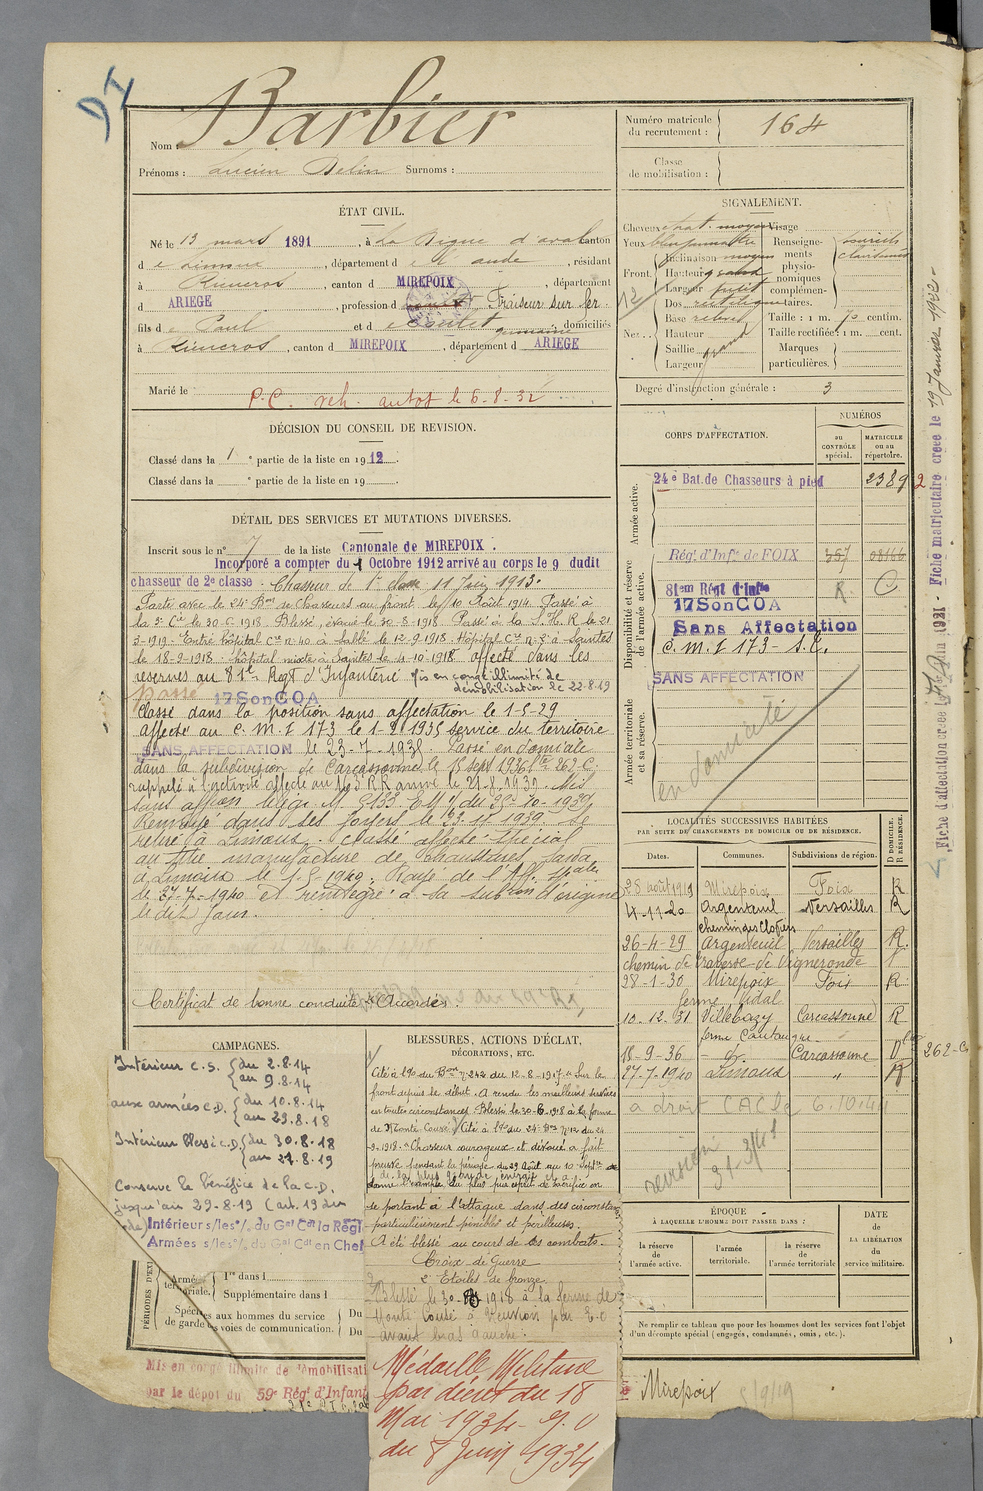 Nom : Barbier
Prénoms : Lucien Surnoms :
ÉTAT CIVIL.
Né le 13 mars 1891, à La Digne d'aval canton
de Limoux, département de l'aude, résidant
à Rieucros, canton d MIREPOIX, département
d ARIEGE, profession d Fraiseur sur fer.
fils de Paul et d germaine, domiciliés
à Rieucros, canton d MIREPOIX, département d ARIEGE
Marié le
P.C. reh. autos le 6-8-32
DÉCISION DU CONSEIL DE REVISION.
Classé dans la 1e partie de la liste en 1912.
Classé dans la e partie de la liste en 19
DÉTAIL DES SERVICES ET MUTATIONS DIVERSES.
Inscrit sous le n° 7 de la liste Cantonale de MIREPOIX.
Incorporé a compter du 1 Octobre 1912 arrivé au corps le 9 dudit
chasseur de 2e classe. Chasseur de 1re classe 11 Juin 1913.
Parti avec le 24e Bon de Chasseurs au front le 10 Août 1914. Passé à
la 3e Cie le 30-6-1918. Blessé, évacué le 30-8-1918. Passé à la S.H.R. le 21
3-1919. Entré hôpital Ce n° 40 à Sablé le 12-9-1918. Hôpital Ce n° 3 à Saintes
le 18-9-1918. hôpital mixte à Saintes le 4-10-1918 affecté dans les
réserves au 81e Regt d'Infanterie Mis en congé illimité de
démobilisation le 22-8-19
Passé 17 Son COA
Classé dans la position sans affectation le 1-5-29
affecté au C.M.I 173 le 1-2-1935 service du territoire
SANS AFFECTATION le 23-7-1935. Passé en domicile
dans la subdivision de Carcassonne le 15 sept 1936 262 C.
rappelé à l'activité affecté au 163e R.R. arrivé le 21-8-1939. Mis
sans affon
Renvoyé dans ses foyers le 23-11-1939. Se
retire à Limoux. Classé affecté spécial
au titre manufacture de Chaussures
à Limoux le 1-5-1940. Rayé de l'Aff. Spale
le 27-7-1940 et réintégré à la subon d'origine
le dit jour.
Certificat de bonne conduite « Accordé ».
CAMPAGNES.
Intérieur C.S. { du 2-8-14
au 9-8-14
aux armées C.D. { du 10-8-14
au 29-8-18
Intérieur blessé C.D. { du 30-8-18
au 21-8-19
Conserve le bénéfice de la C.D.
jusqu'au 29-8-19 (art. 19 du
Intérieur s/les °/. du Gal Cdt la Régi
Armées s/les °/. du Gal Cdt en Chef
PÉRIODES D'EX
Armée territoriale.
1re dans l
Supplémentaire dans l
Spéciales aux hommes du service
de garde des voies de communication.
Du
Du
Mis en congé illimité de démobilisati
par le dépôt du 59e Régt d'Infant
BLESSURES, ACTIONS D'ÉCLAT,
DÉCORATIONS, ETC.
Cité à l'O. du Bon n° 242 du 12-8-1917 « Sur le
front depuis le début. A rendu les meilleurs services
en toutes circonstances. Blessé le 30-6-1918 à la ferme
de Monte Couvé » Cité à l'O. du 24e Bon n° 12 du 24
9-1918. « Chasseur courageux et dévoué a fait
preuve pendant la période du 29 Août au 10 Septbre
de la plus grande énergie et a
donné l'exemple du plus pur esprit de sacrifice en
se portant à l'attaque dans des circonstances
particulièrement pénibles et périlleuses.
A été blessé au cours de ces combats.
Croix de Guerre
2 Etoiles de bronze
Blessé le 30-8-1918 à la ferme de
Monte Couvé à Vuxion par E.O
avant bras gauche.
Médaille Militaire
par décret du 18
Mai 1934 - J.O
du 8 Juin 1934
Numéro matricule
du recrutement : 164
Classe
de mobilisation :
SIGNALEMENT.
Cheveux chat. moyen Visage
Yeux
Front. Inclinaison moyen
Hauteur grand
Largeur petit
Dos rectiligne
Nez Base relevé
Hauteur
Saillie grand
Largeur
Renseignements physionomiques complémentaires.
sourcils
clairsemés
Taille : 1 m. 70 centim.
Taille rectifiée : 1 m. cent.
Marques
particulières.
Degré d'instruction générale : 3
CORPS D'AFFECTATION.
NUMÉROS
au CONTRÔLE spécial.
MATRICULE ou au répertoire.
Armée active.
24e Bat. de Chasseurs à pied 2389 2
Disponibilité et réserve de l'armée active.
Régt. d'Infie de FOIX 357 08166
81em Régt d'Infie R. C
17 Son COA
Sans Affectation
C.M.I 173 - S.T.
Armée territoriale et sa réserve.
SANS AFFECTATION
en domicile
LOCALITÉS SUCCESSIVES HABITÉES
PAR SUITE DE CHANGEMENTS DE DOMICILE OU DE RÉSIDENCE.
Dates. Communes. Subdivisions de région. D DOMICILE. R RÉSIDENCE.
28 août 1919 Mirepoix Foix R
4-11-20 Argenteuil Versailles R
chemin des Clotiers
26-4-29 Argenteuil Versailles R.
chemin de traverse de Vigneronde
28-1-30 Mirepoix Foix R
ferme Vidal
10-12-31 Villebazy Carcassonne R
15-9-36 - d° - Carcassonne D 262-C
27-7-1940 Limoux " R
a droit CAC le 6.10.44
revision
ÉPOQUE
À LAQUELLE L'HOMME DOIT PASSER DANS :
la réserve de l'armée active.
l'armée territoriale.
la réserve de l'armée territoriale
DATE de LA LIBÉRATION du service militaire.
Ne remplir ce tableau que pour les hommes dont les services font l'objet
d'un décompte spécial (engagés, condamnés, omis, etc.).
Mirepoix 5/9/19
Fiche matriculaire créée le 19 Janvier 1932 -
Fiche d'affectation créée le 1921 -